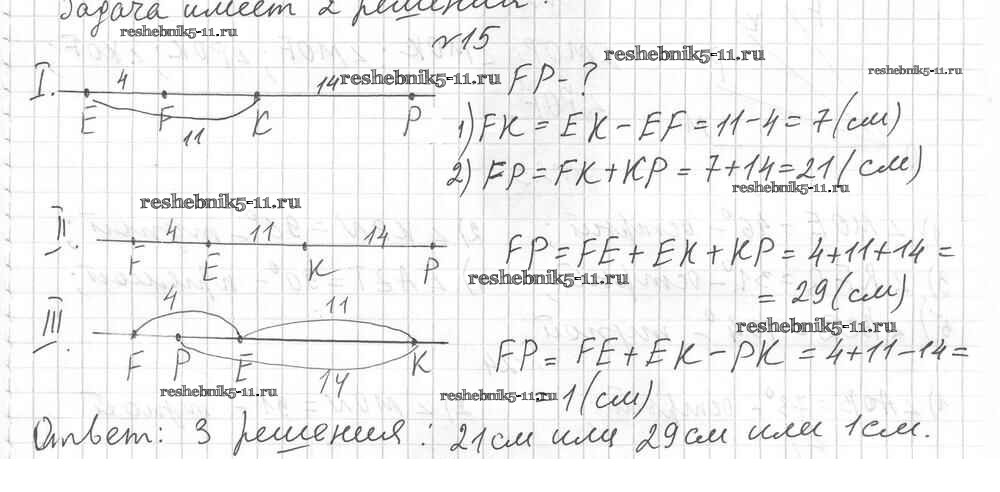 Задача имеет 2 решения.
reshebnik5-11.ru
№15
reshebnik5-11.ru
reshebnik5-11.ru
reshebnik5-11.ru
I. 4 14 FP-?
E F K P
11
1) FK = EK - EF = 11 - 4 = 7 (см)
2) FP = FK + KP = 7 + 14 = 21 (см)
reshebnik5-11.ru
reshebnik5-11.ru
II. 4 11 14
F E K P
FP = FE + EK + KP = 4 + 11 + 14 =
reshebnik5-11.ru
= 29 (см)
III. 4 11
reshebnik5-11.ru
F P E K
14
FP = FE + EK - PK = 4 + 11 - 14 =
reshebnik5-11.ru
reshebnik5-11.ru
= 1 (см)
Ответ: 3 решения: 21 см или 29 см или 1 см.